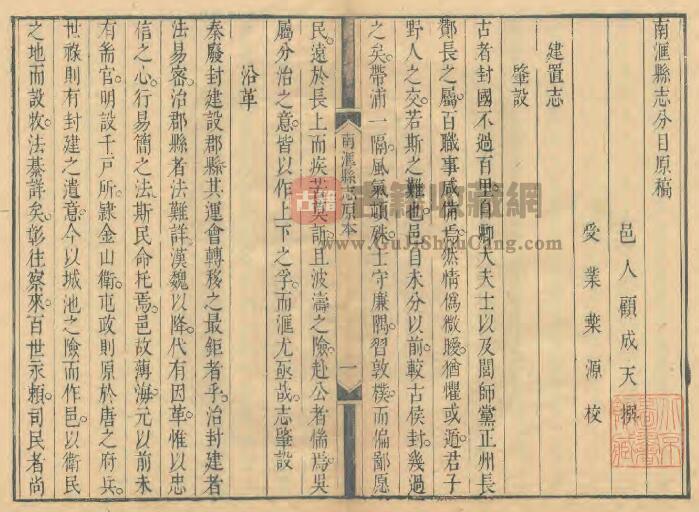 南滙縣志分目原稿
邑人顧成天撰
受業葉源校
建置志
肇設
古者封國不過百里自卿大夫士以及閭師黨正州長
鄼長之屬百職事咸備焉然情偽微曖猶懼或遁君子
野人之交若斯之難也邑自未分以前較古侯封幾過
之矣帶浦一隔風氣頓殊士守廉隅習敦樸而偏鄙愿
民遠於長上而疾苦莫訴且波濤之險赴公者惴焉吳
屬分治之意皆以作上下之孚而滙尤亟哉志肇設
沿革
秦廢封建設郡縣其運會轉移之最鉅者乎治封建者
法易密治郡縣者法難詳漢魏以降代有因革惟以忠
信之心行易簡之法斯民命托焉邑故薄海元以前未
有耑官明設千戶所隷金山衛屯政則原於唐之府兵
世祿則有封建之遺意今以城池之險而作邑以衛民
之地而設牧法綦詳矣彰往察來百世永賴司民者尚
南滙縣志原本
一
古籍收藏網
www.GuJiShouCang.com